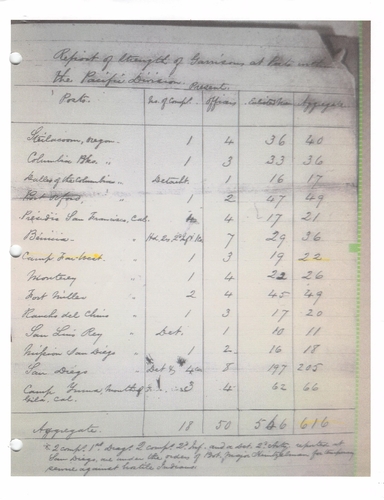 Report of Strength of Garrisons at Posts in the
the Pacific Division.
Present
Posts. No. of Compl. Officers Enlisted Men Aggregate
Steilacoom, Oregon 1 4 36 40
Columbia Bks. " 1 3 33 36
Dalles of the Columbia " Detacht. 1 16 17
Port Orford " 1 2 47 49
Presidio San Francisco, Cal. 4 17 21
Benicia " 7 29 36
Camp Far West " 1 3 19 22
Monterey " 1 4 22 26
Fort Miller " 2 4 45 49
Rancho del Chino " 1 3 17 20
San Luis Rey " Det. 1 10 11
Mission San Diego " 1 2 16 18
San Diego " Det & 4 8 197 205
Camp Yuma, Mouth of 3 4 62 66
Gila, Cal.
Aggregate. 18 50 546 616
2 compl. 1st Drags. 2 compl. 2d Inf. and a det. 2d Arty. reported at
San Diego, are under the orders of Bvt. Major Heintzelman for temporary
service against hostile Indians.